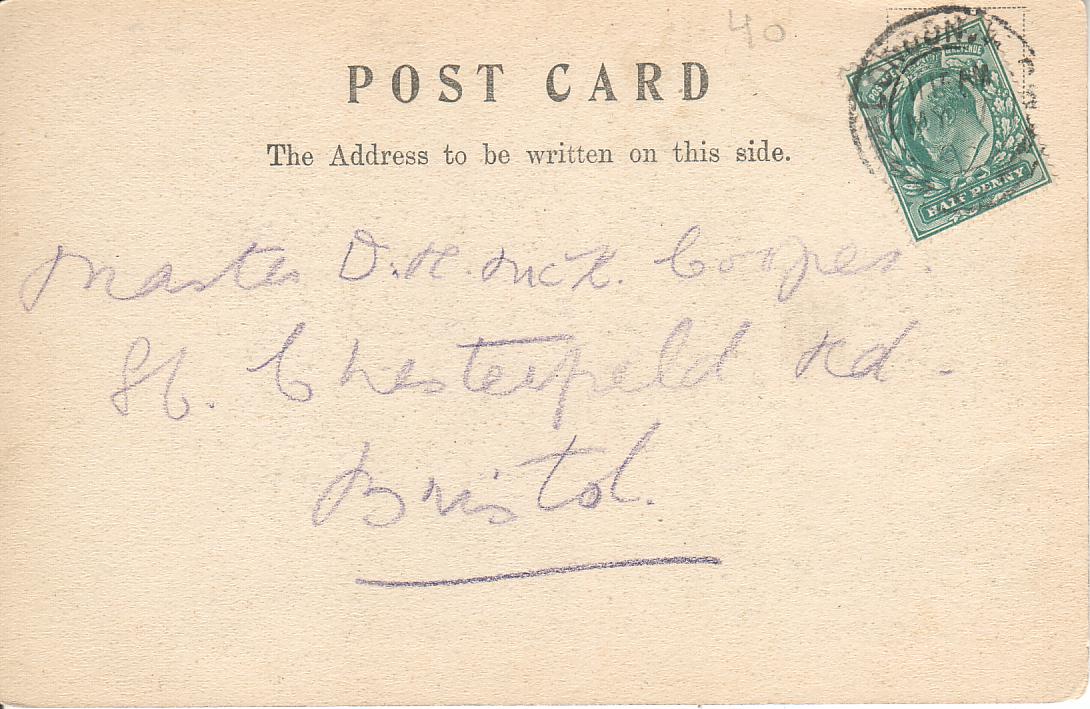 40
POST CARD
The Address to be written on this side.
LONDON.
POSTAGE & REVENUE
HALF PENNY
Master D.H. McK. Cooper.
86. Chesterfield Rd.
Bristol.